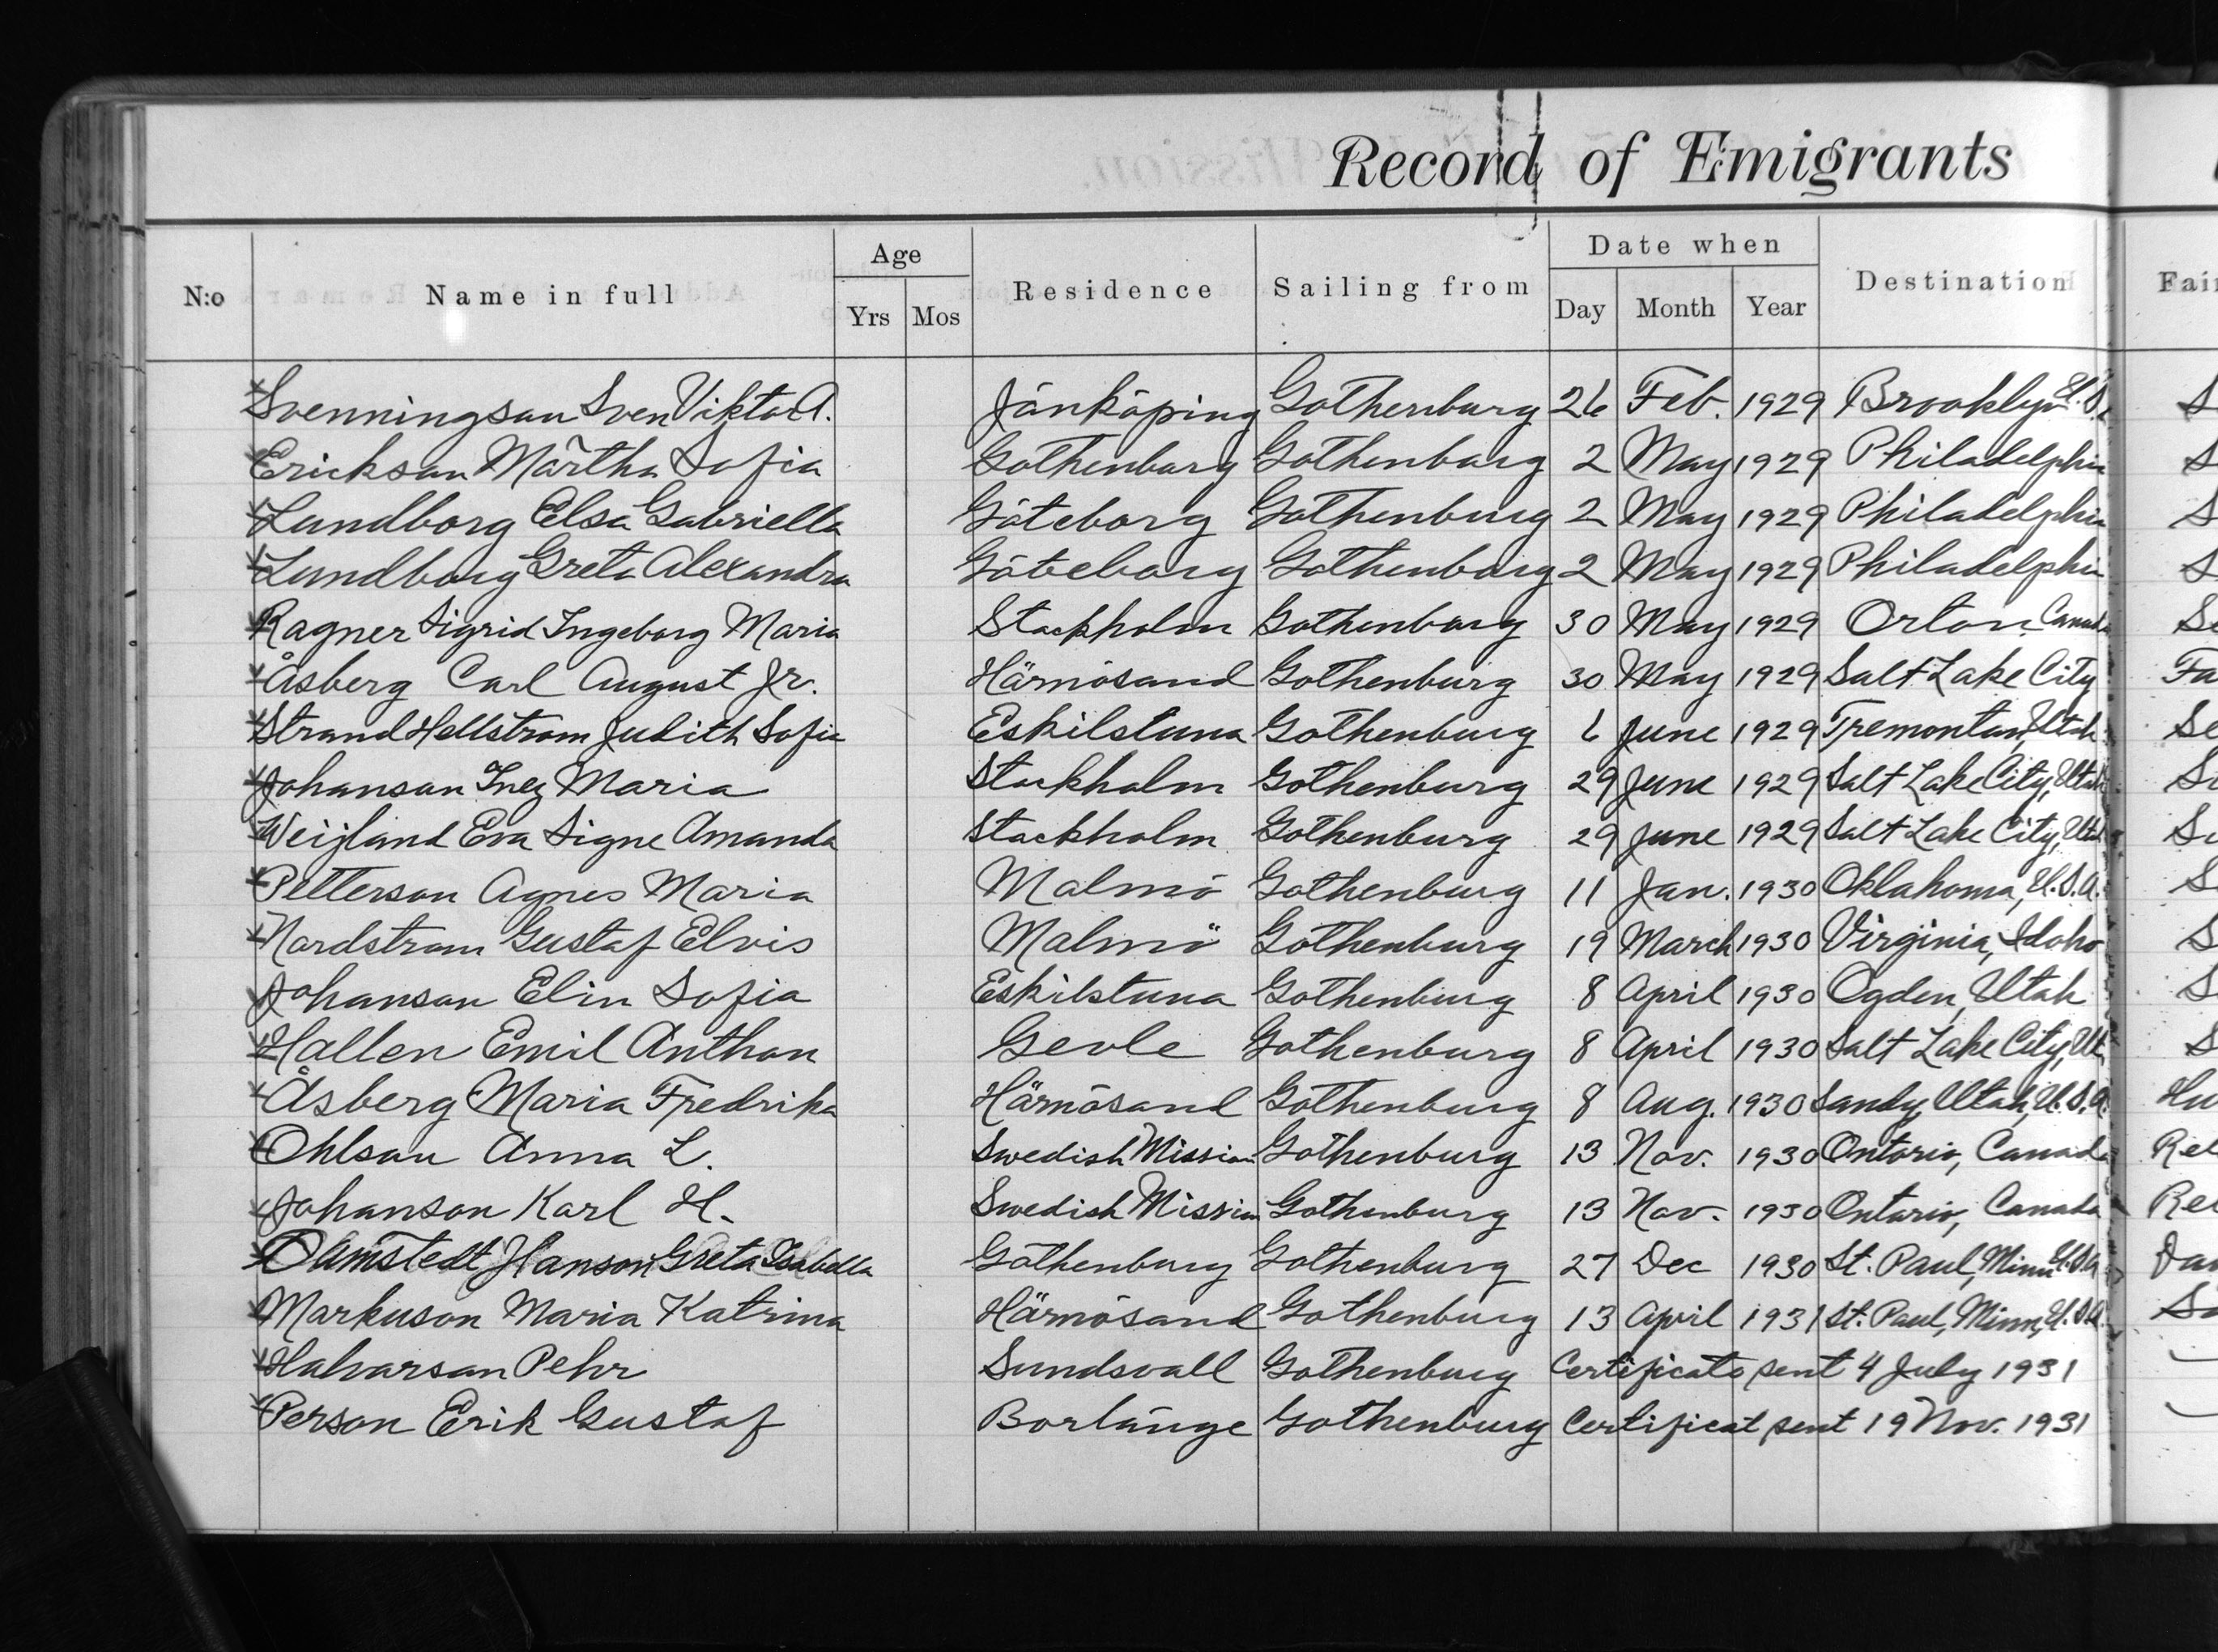 Record of Emigrants
N:o Name in full Age Yrs Mos Residence Sailing from Date when Day Month Year Destination
Svenningson Sven Viktor A. Jönköping Gothenburg 26 Feb. 1929 Brooklyn U.S.
Erickson Märtha Sofia Gothenburg Gothenburg 2 May 1929 Philadelphia
Lundborg Elsa Gabriella Göteborg Gothenburg 2 May 1929 Philadelphia
Lundborg Greta Alexandra Göteborg Gothenburg 2 May 1929 Philadelphia
Ragner Sigrid Ingeborg Maria Stockholm Gothenburg 30 May 1929 Orton, Canada
Åsberg Carl August Jr. Härnösand Gothenburg 30 May 1929 Salt Lake City
Strand Hellstrom Judith Sofia Eskilstuna Gothenburg 6 June 1929 Tremonton, Utah
Johanson Inez Maria Stockholm Gothenburg 29 June 1929 Salt Lake City, Utah
Weijland Eva Signe Amanda Stockholm Gothenburg 29 June 1929 Salt Lake City, Utah
Petterson Agnes Maria Malmö Gothenburg 11 Jan. 1930 Oklahoma, U.S.A.
Nordstrom Gustaf Elvis Malmö Gothenburg 19 March 1930 Virginia, Idoho
Johanson Elin Sofia Eskilstuna Gothenburg 8 April 1930 Ogden, Utah
Hallen Emil Anthon Gevle Gothenburg 8 April 1930 Salt Lake City, Ut
Åsberg Maria Fredrika Härnösand Gothenburg 8 Aug. 1930 Sandy, Utah, U.S.A.
Ohlson Anna L. Swedish Mission Gothenburg 13 Nov. 1930 Ontario, Canada
Johanson Karl H. Swedish Mission Gothenburg 13 Nov. 1930 Ontario, Canada
Hanson Greta Isabella Göthenburg Gothenburg 27 Dec 1930 St. Paul, Minn U.S.A
Markuson Maria Katrina Härnösand Gothenburg 13 April 1931 St. Paul, Minn, U.S.A.
Halvarson Pehr Sundsvall Gothenburg Certificate sent 4 July 1931
Person Erik Gustaf Borlänge Gothenburg Certificat sent 19 Nov. 1931